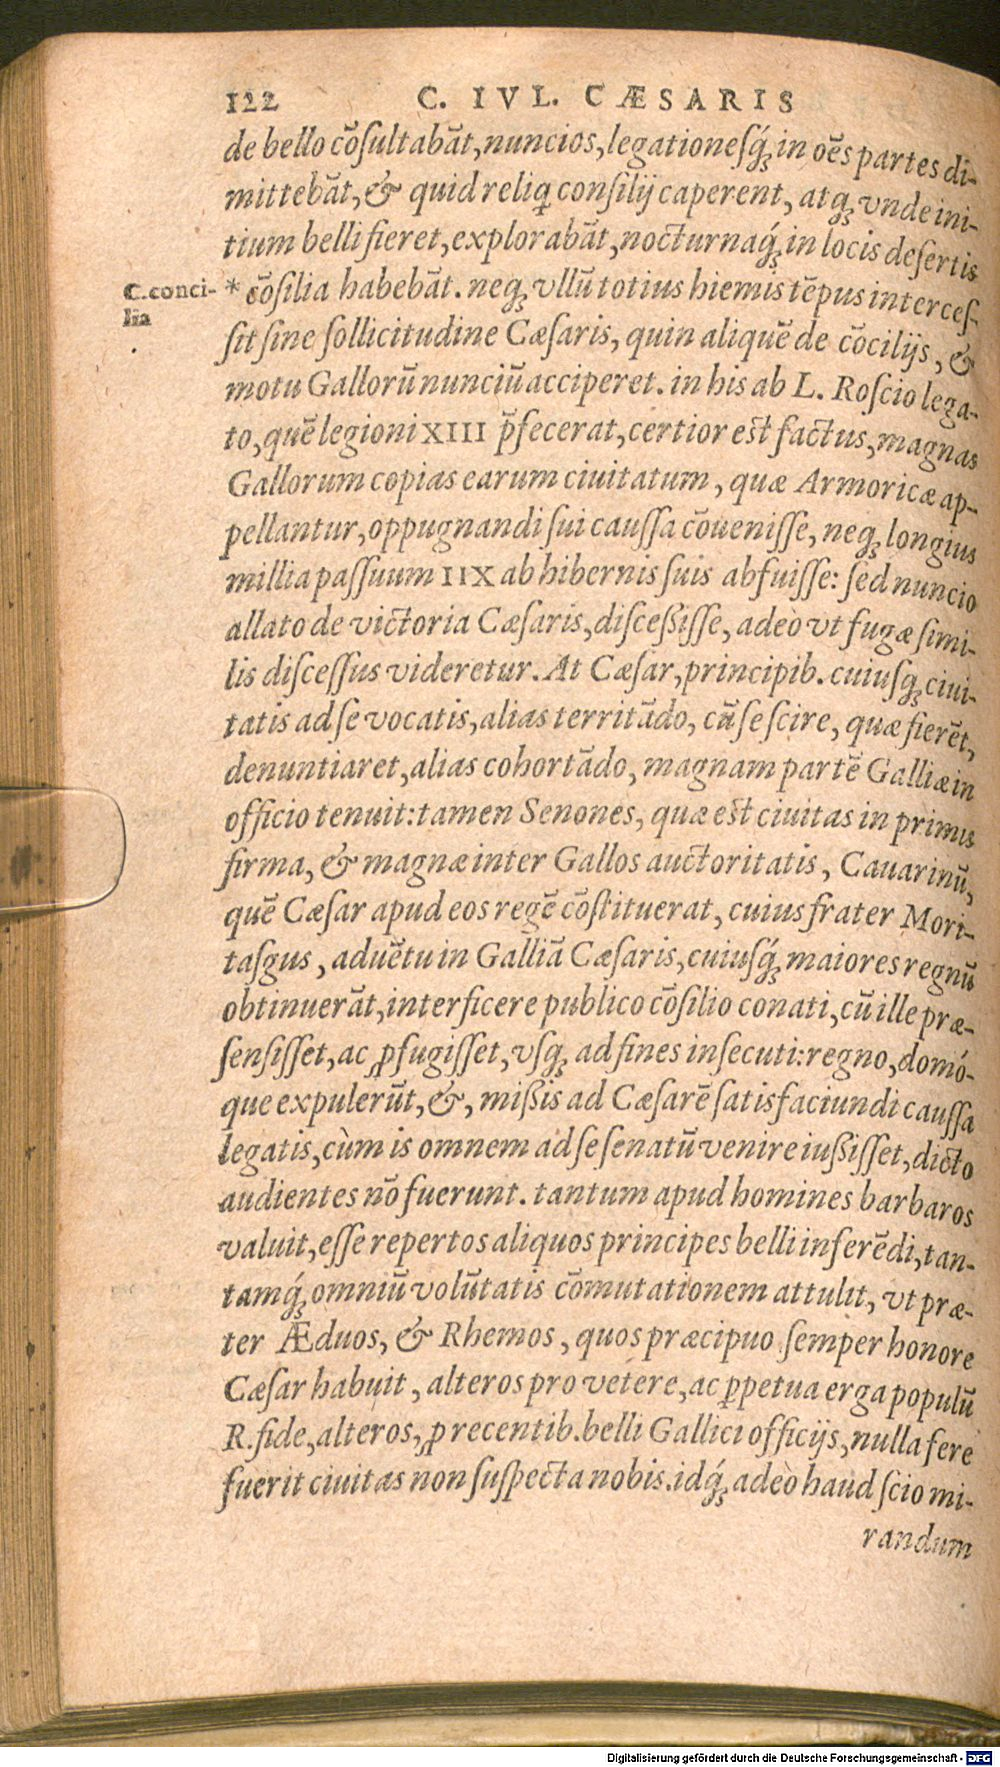 122 C. IVL. CÆSARIS
de bello cōſultabāt, nuncios, legationeſq́ꝫ in oēs partes di-
mittebāt, & quid reliq̄ conſilij caperent, atqꝫ vnde ini-
tium belli fieret, explorabāt, nocturnaq́ꝫ in locis deſertis
C. conci-
lia
* cōſilia habebāt. neqꝫ vllū totius hiemis tēpus interceſ-
ſit ſine ſollicitudine Cæſaris, quin aliquē de cōcilijs, &
motu Gallorū nunciū acciperet. in his ab L. Roſcio lega-
to, quē legioni XIII p̄fecerat, certior eſt factus, magnas
Gallorum copias earum ciuitatum, quæ Armoricæ ap-
pellantur, oppugnandi ſui cauſſa cōueniſſe, neqꝫ longius
millia paſſuum IIX ab hibernis ſuis abfuiſſe: ſed nuncio
allato de victoria Cæſaris, diſceßiſſe, adeò vt fugæ ſimi-
lis diſceſſus videretur. At Cæſar, principib. cuiuſqꝫ ciui-
tatis ad ſe vocatis, alias territādo, cū ſe ſcire, quæ fierēt,
denuntiaret, alias cohortādo, magnam partē Galliæ in
officio tenuit: tamen Senones, quæ eſt ciuitas in primis
firma, & magnæ inter Gallos auctoritatis, Cauarinū,
quē Cæſar apud eos regē cōſtituerat, cuius frater Mori-
taſgus, aduētu in Galliā Cæſaris, cuiuſq́ꝫ maiores regnū
obtinuerāt, interficere publico cōſilio conati, cū ille præ-
ſenſiſſet, ac ꝓfugiſſet, vſqꝫ ad fines inſecuti: regno, domó-
que expulerūt, &, mißis ad Cæſarē ſatisfaciundi cauſſa
legatis, cùm is omnem ad ſe ſenatū venire iußiſſet, dicto
audientes nō fuerunt. tantum apud homines barbaros
valuit, eſſe repertos aliquos principes belli inferēdi, tan-
tamq́ꝫ omniū volūtatis cōmutationem attulit, vt præ-
ter Æduos, & Rhemos, quos præcipuo ſemper honore
Cæſar habuit, alteros pro vetere, ac ꝑpetua erga populū
R. fide, alteros, ꝓ recentib. belli Gallici officijs, nulla fere
fuerit ciuitas non ſuſpecta nobis. idq́ꝫ adeò haud ſcio mi-
randum
Digitalisierung gefördert durch die Deutsche Forschungsgemeinschaft - DFG